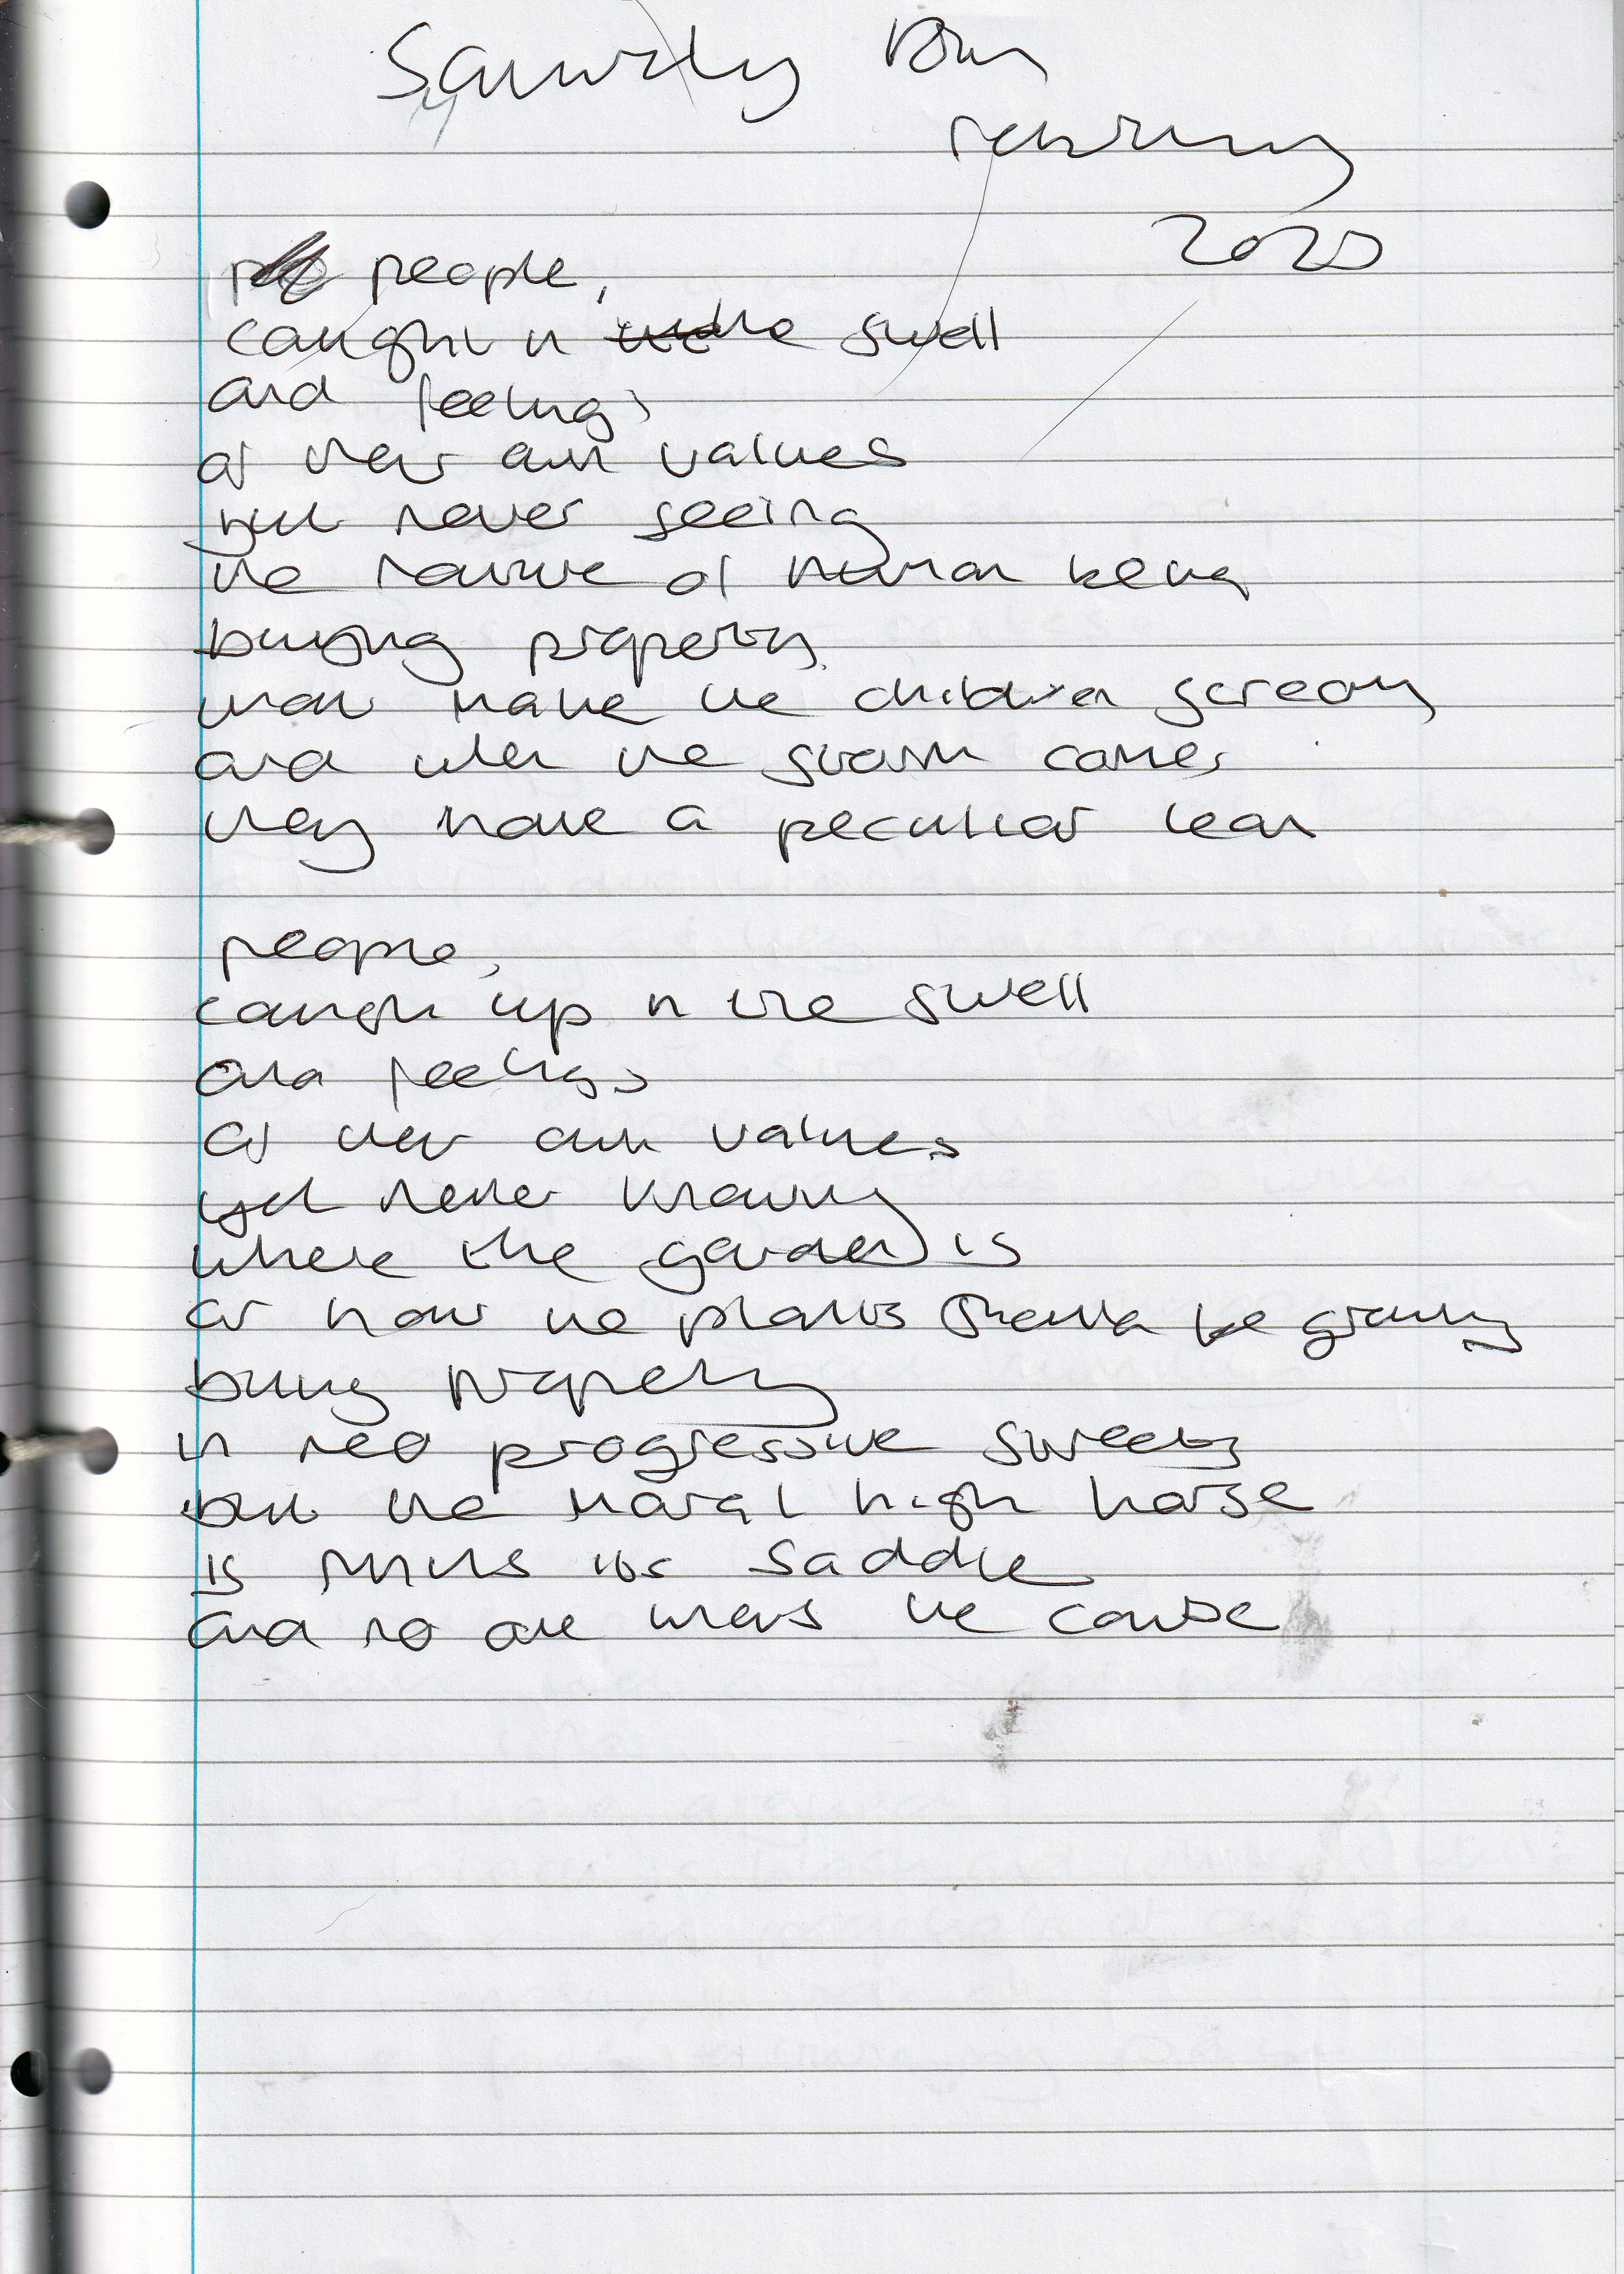 Saturday 8am
February
2020
people,
caught in the swell
and feelings
of their own values
but never seeing
the nature of human being
buying property
that make the children scream
and when the storm comes
they have a peculiar lean
people,
caught up in the swell
and feelings
of their own values
yet never knowing
where the garden is
or how the plants should be growing
buying property
in neo progressive streets
but the moral high horse
is minus its saddle
and no one wears the course